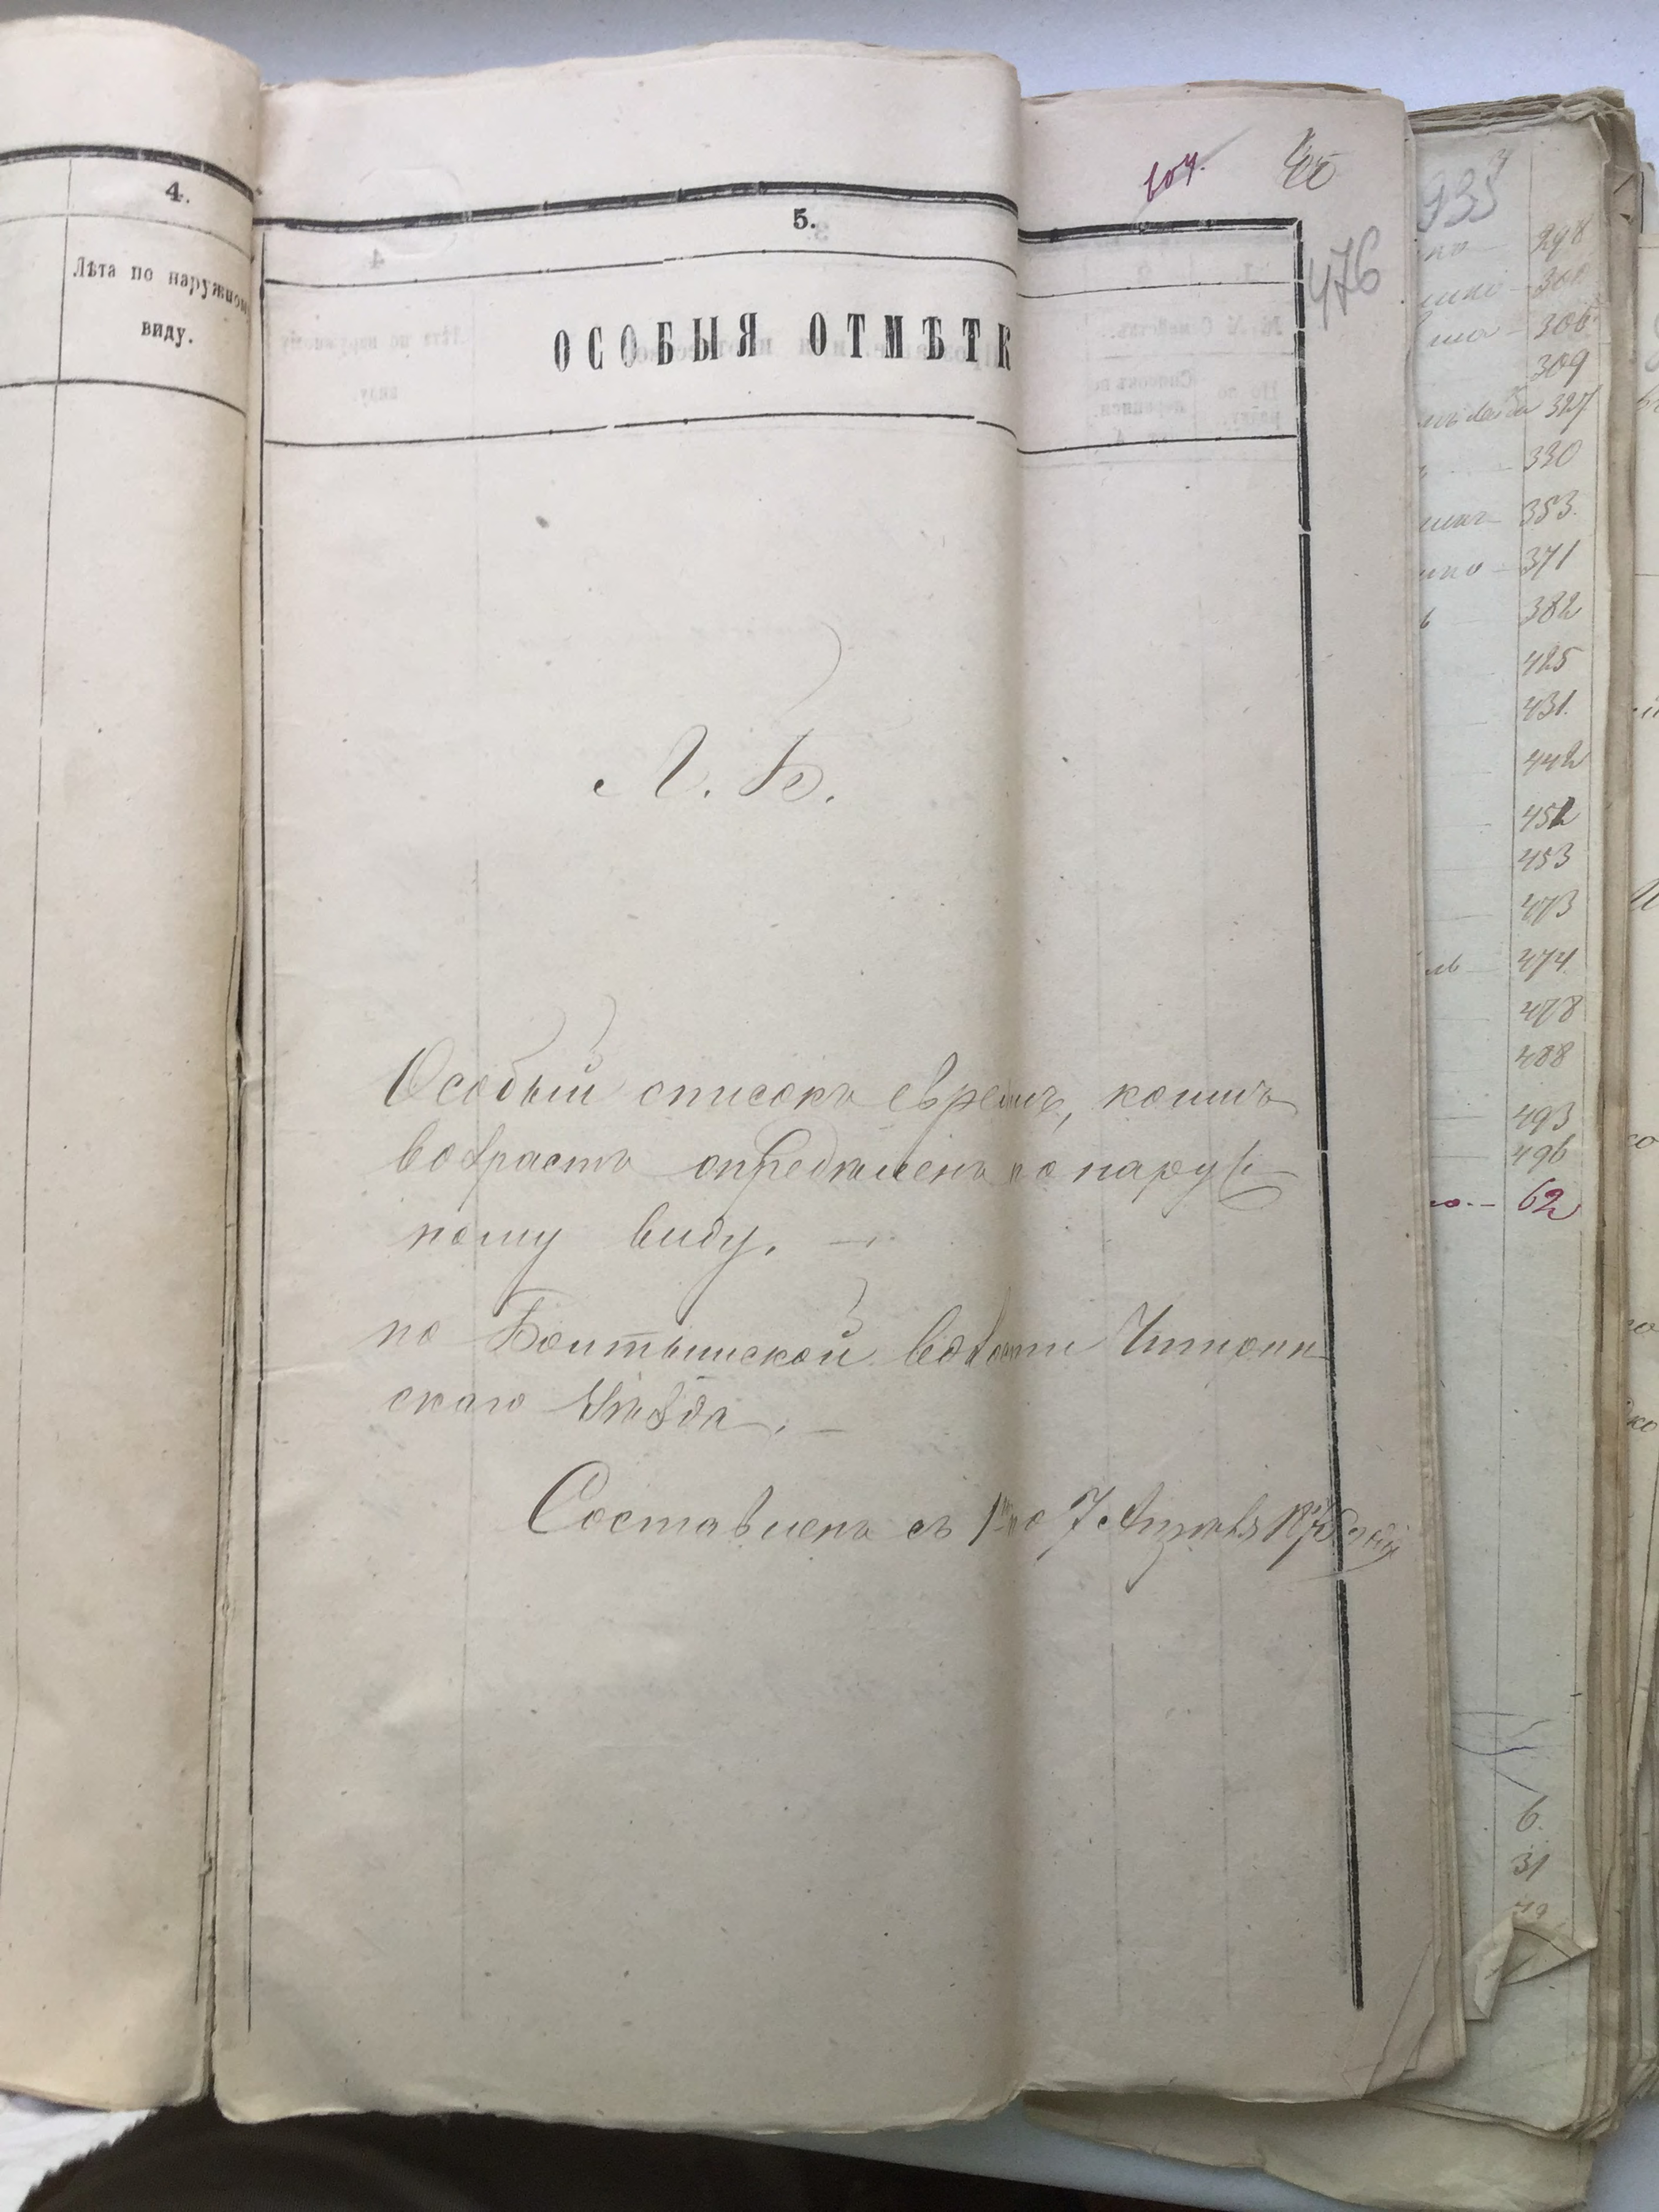 4.
Лѣта по наружному
виду.
5.
ОСОБЫЯ ОТМѢТК
604.
476
Л. Б.
Особый списокъ евреямъ, коимъ
возрастъ опредѣленъ по наруж-
ному виду. —
по Болтышской волости Чигирин-
скаго Уѣзда. —
Составленъ съ 1го по 7 Апрѣля 1875 года
935
298
301
306
309
327
330
353.
371
382
425
431.
442
452
453
473
474.
478
488
493
496
62
6.
31